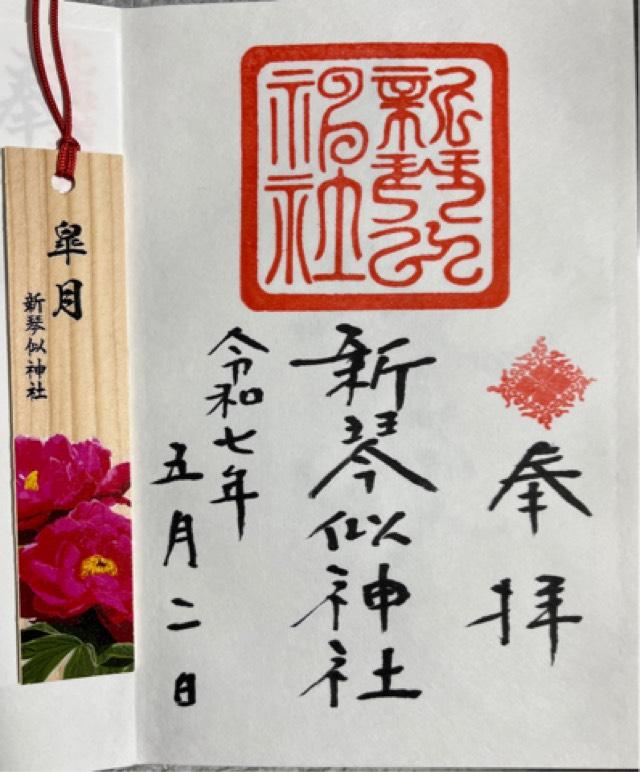 奉拝
新琴似神社
新琴似神社
令和七年
五月二日
皐月
新琴似神社